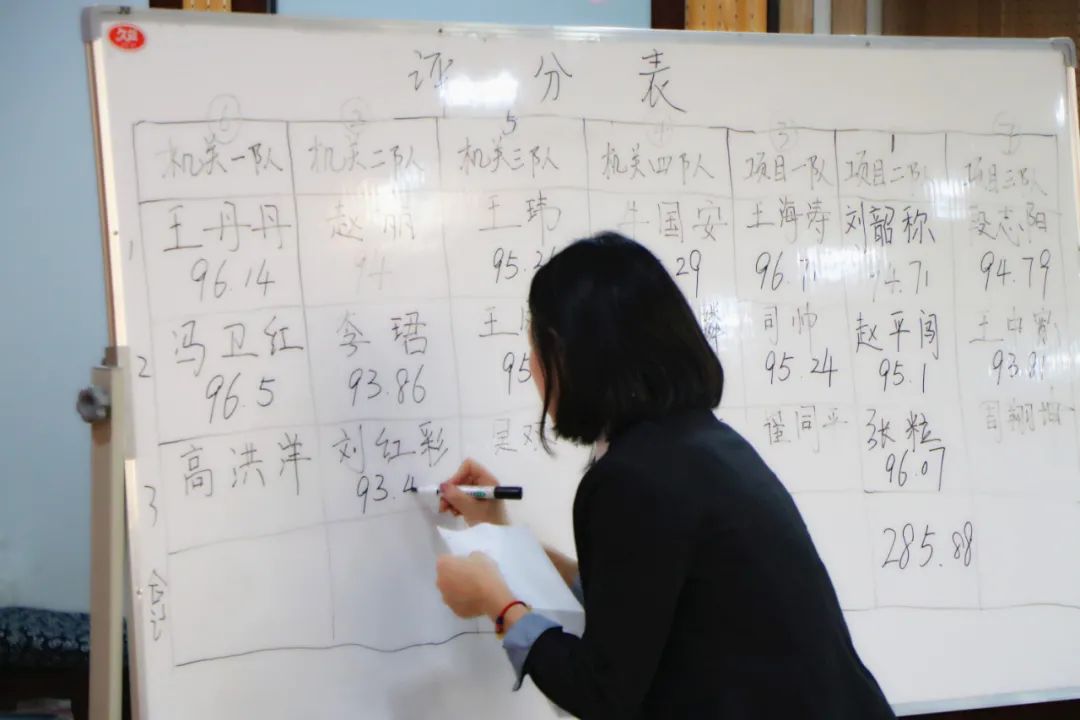 久红
评 分 表
① ② 5 ④ ③ 1 ⑦
机关一队 机关二队 机关三队 机关四队 项目一队 项目二队 项目三队
1 王丹丹 赵丽 王玮 牛国安 王海涛 刘韶称 段志阳
96.14 94 95.2 29 96.71 94.71 94.79
2 冯卫红 李珺 王 司帅 赵平闯 王
96.5 93.86 95 95.24 95.1 93.81
3 高洪洋 刘红彩 吴 同平 张粒 周翔
93.4 96.07
合计 285.88